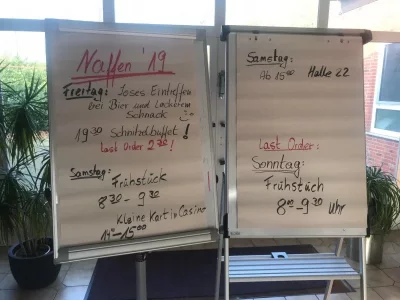 Naffen '19
Freitag: Loses Eintreffen
bei Bier und Lockerem
Schnack
19.30 Schnitzelbuffet!
Last Order 2130!
Samstag:
Frühstück
8.30 - 9.30
Kleine Karte in Casino
- 15.00
Samstag:
Ab 15.00 Halle 22
Last Order:
Sonntag:
Frühstück
8.00 - 9.30 Uhr